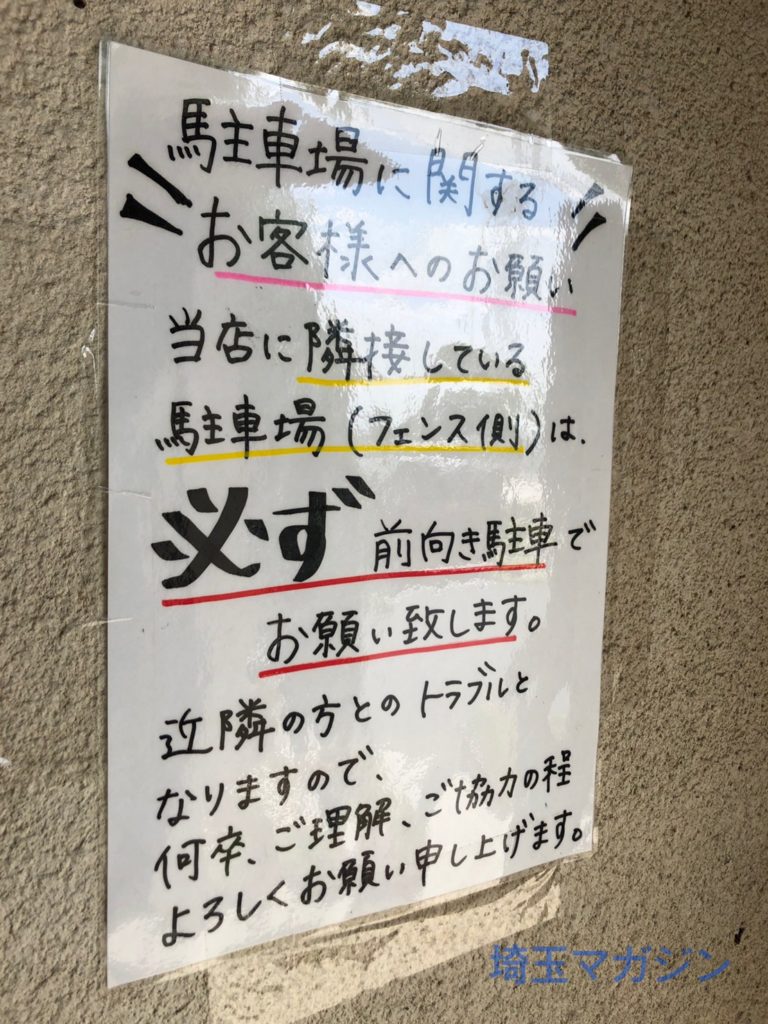 駐車場に関する
お客様へのお願い
当店に隣接している
駐車場(フェンス側)は、
必ず前向き駐車で
お願い致します。
近隣の方とのトラブルと
なりますので、
何卒、ご理解、ご協力の程
よろしくお願い申し上げます。
埼玉マガジン